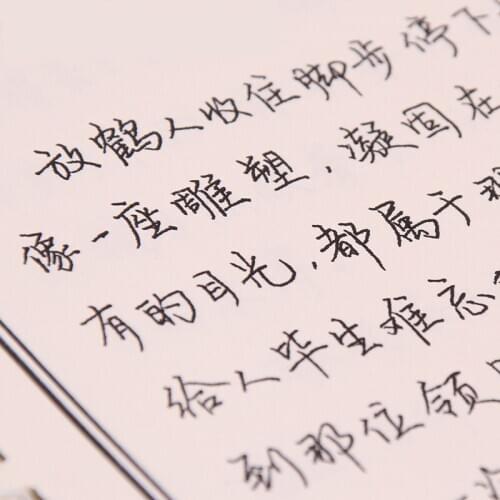 放鹤人收住脚步停下
像一座雕塑，凝固在
有的目光，都属于那
给人毕生难忘
到那位领